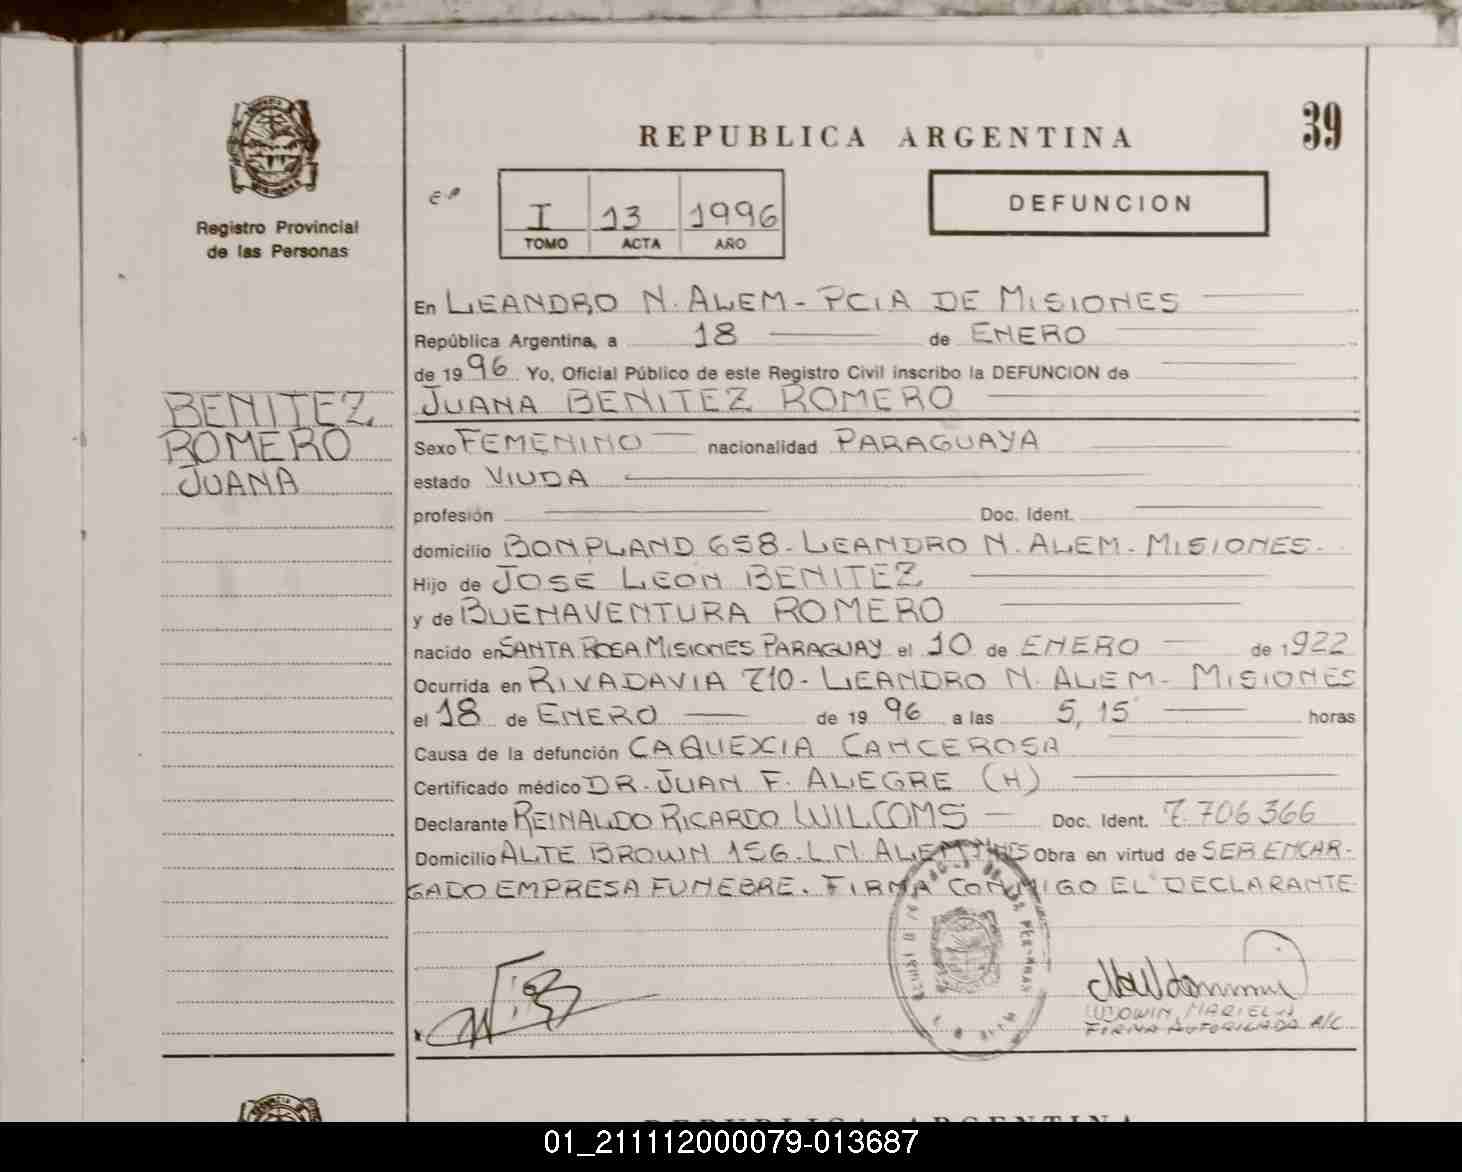 39
REPUBLICA ARGENTINA
DEFUNCION
I 13 1996
TOMO ACTA AÑO
Registro Provincial
de las Personas
BENITEZ
ROMERO
JUANA
En LEANDRO N. ALEM - PCIA DE MISIONES
República Argentina, a 18 de ENERO
de 1996 Yo, Oficial Público de este Registro Civil inscribo la DEFUNCION de
JUANA BENITEZ ROMERO
Sexo FEMENINO nacionalidad PARAGUAYA
estado VIUDA
profesión Doc. Ident.
domicilio BONPLAND 658 - LEANDRO N. ALEM - MISIONES.
Hijo de JOSE LEON BENITEZ
y de BUENAVENTURA ROMERO
nacido en SANTA ROSA MISIONES PARAGUAY el 10 de ENERO de 1922
Ocurrida en RIVADAVIA 710 - LEANDRO N. ALEM - MISIONES
el 18 de ENERO de 1996 a las 5,15 horas
Causa de la defunción CAQUEXIA CANCEROSA
Certificado médico DR. JUAN F. ALEGRE (H)
Declarante REINALDO RICARDO WILCOMS Doc. Ident. 7.706366
Domicilio ALTE BROWN 156. L.N. ALEM Obra en virtud de SER ENCAR-
GADO EMPRESA FUNEBRE. FIRMA CONMIGO EL DECLARANTE
FIRMA AUTORIZADA A/C
REPUBLICA ARGENTINA
01_211112000079-013687